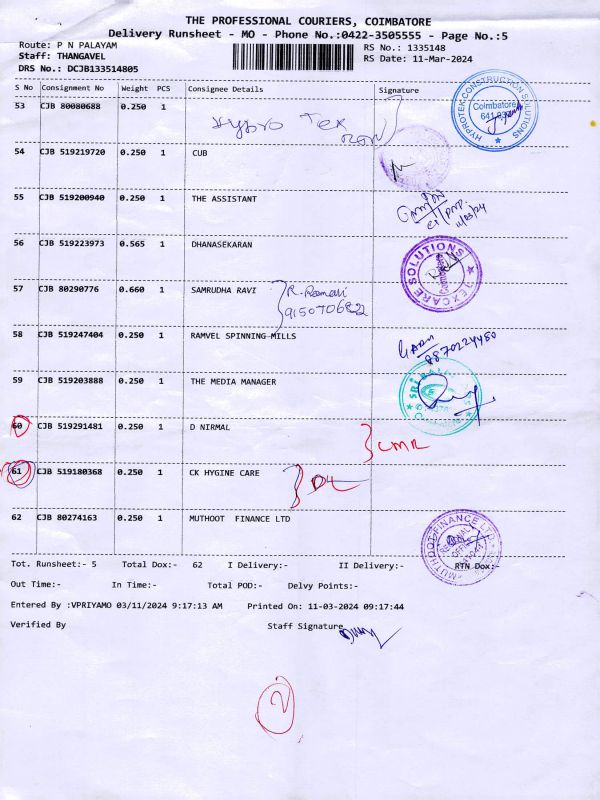 THE PROFESSIONAL COURIERS, COIMBATORE
Delivery Runsheet - MO - Phone No.:0422-3505555 - Page No.:5
Route: P N PALAYAM
RS No.: 1335148
Staff: THANGAVEL
RS Date: 11-Mar-2024
DRS No.: DCJB133514805
S No Consignment No Weight PCS Consignee Details Signature
53 CJB 80080688 0.250 1
Hypro Tex
HYPROTEK CONSTRUCTION SOLUTIONS
Coimbatore
54 CJB 519219720 0.250 1 CUB
55 CJB 519200940 0.250 1 THE ASSISTANT
56 CJB 519223973 0.565 1 DHANASEKARAN
REXCARE SOLUTIONS
57 CJB 80290776 0.660 1 SAMRUDHA RAVI
58 CJB 519247404 0.250 1 RAMVEL SPINNING MILLS
8870224450
59 CJB 519203888 0.250 1 THE MEDIA MANAGER
60 CJB 519291481 0.250 1 D NIRMAL
CMR
61 CJB 519180368 0.250 1 CK HYGINE CARE
DL
62 CJB 80274163 0.250 1 MUTHOOT FINANCE LTD
MUTHOOT FINANCE LTD
REGIONAL OFFICE
Tot. Runsheet:- 5 Total Dox:- 62 I Delivery:- II Delivery:- RTN Dox:-
Out Time:- In Time:- Total POD:- Delvy Points:-
Entered By :VPRIYAMO 03/11/2024 9:17:13 AM Printed On: 11-03-2024 09:17:44
Verified By Staff Signature
2